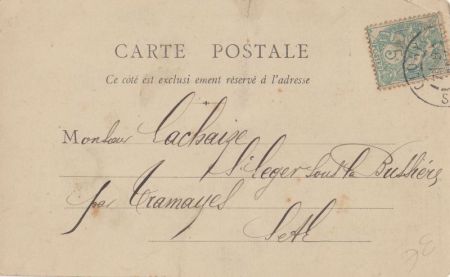 CARTE POSTALE
Ce côté est exclusi ement réservé à l'adresse
Monsieur Lachaize
St Leger sous la Bussière
par Tramayes
S et L
5